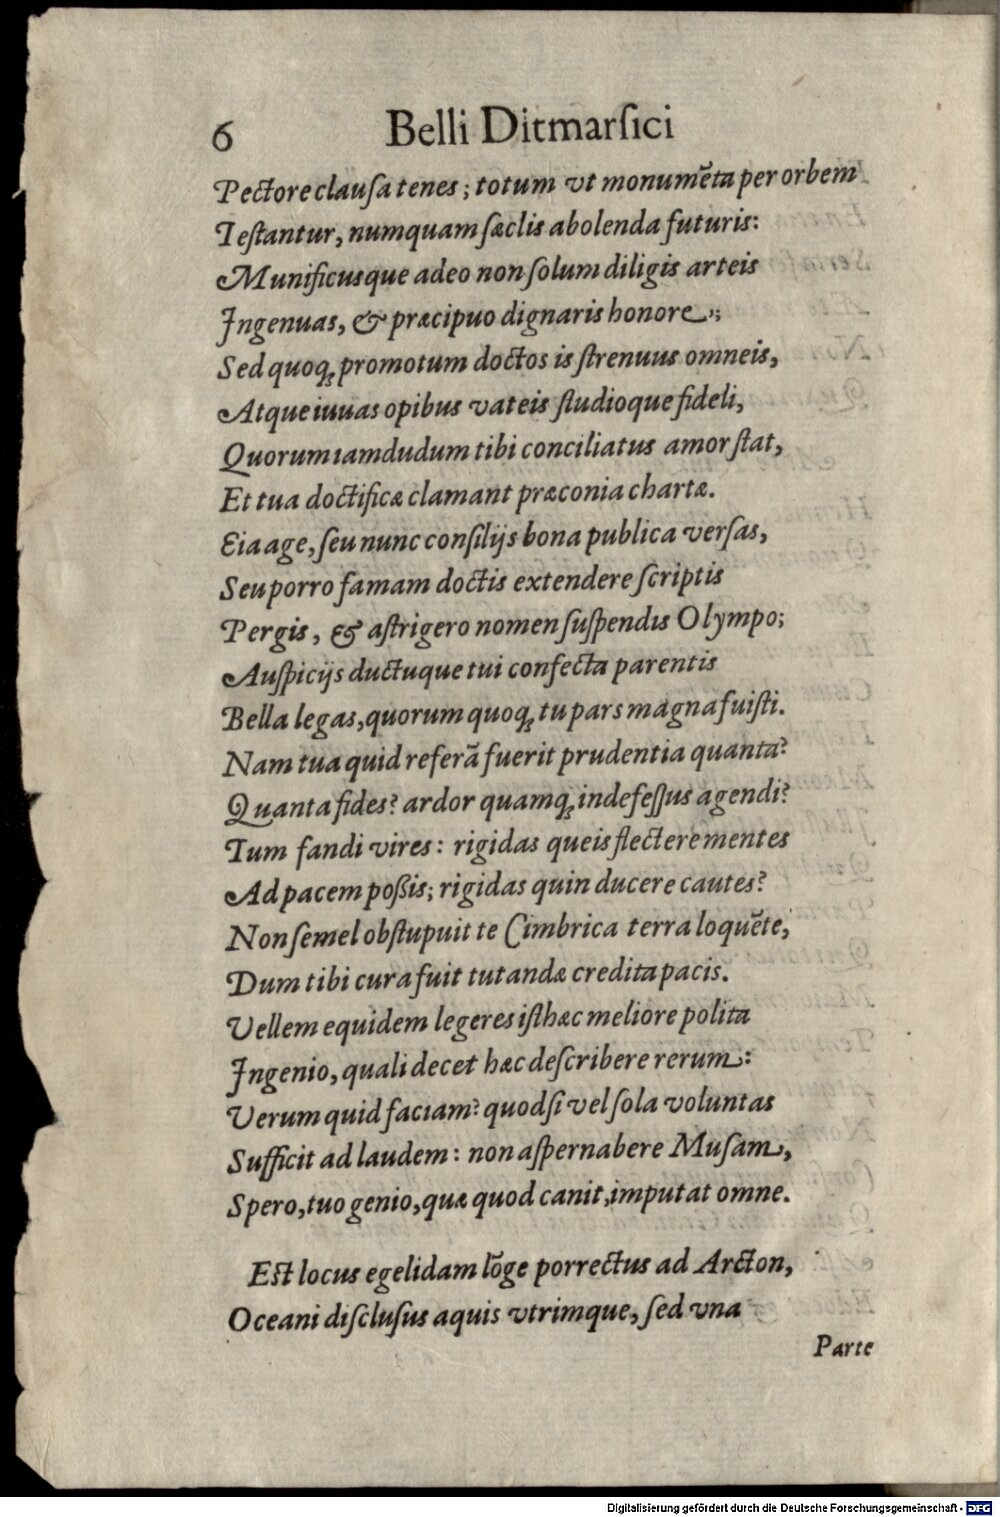 6 Belli Ditmarſici
Pectore clauſa tenes; totum vt monumẽta per orbem
Teſtantur, numquam ſæclis abolenda futuris:
Munificusque adeo non ſolum diligis arteis
Ingenuas, & præcipuo dignaris honore;
Sed quoq; promotum doctos is ſtrenuus omneis,
Atque iuuas opibus vateis ſtudioque fideli,
Quorum iamdudum tibi conciliatus amor ſtat,
Et tua doctificæ clamant præconia chartæ.
Eia age, ſeu nunc conſilijs bona publica verſas,
Seu porro famam doctis extendere ſcriptis
Pergis, & aſtrigero nomen ſuſpendis Olympo;
Auſpicijs ductuque tui confecta parentis
Bella legas, quorum quoq; tu pars magna fuiſti.
Nam tua quid referã fuerit prudentia quanta?
Quanta fides? ardor quamq; indefeſſus agendi?
Tum fandi vires: rigidas queis flectere mentes
Ad pacem poßis; rigidas quin ducere cautes?
Non ſemel obſtupuit te Cimbrica terra loquẽte,
Dum tibi cura fuit tutandæ credita pacis.
Vellem equidem legeres iſthæc meliore polita
Ingenio, quali decet hæc deſcribere rerum:
Verum quid faciam? quodſi vel ſola voluntas
Sufficit ad laudem: non aſpernabere Muſam,
Spero, tuo genio, quæ quod canit, imputat omne.
Eſt locus egelidam lõge porrectus ad Arcton,
Oceani diſcluſus aquis vtrimque, ſed vna
Parte
Digitalisierung gefördert durch die Deutsche Forschungsgemeinschaft - DFG